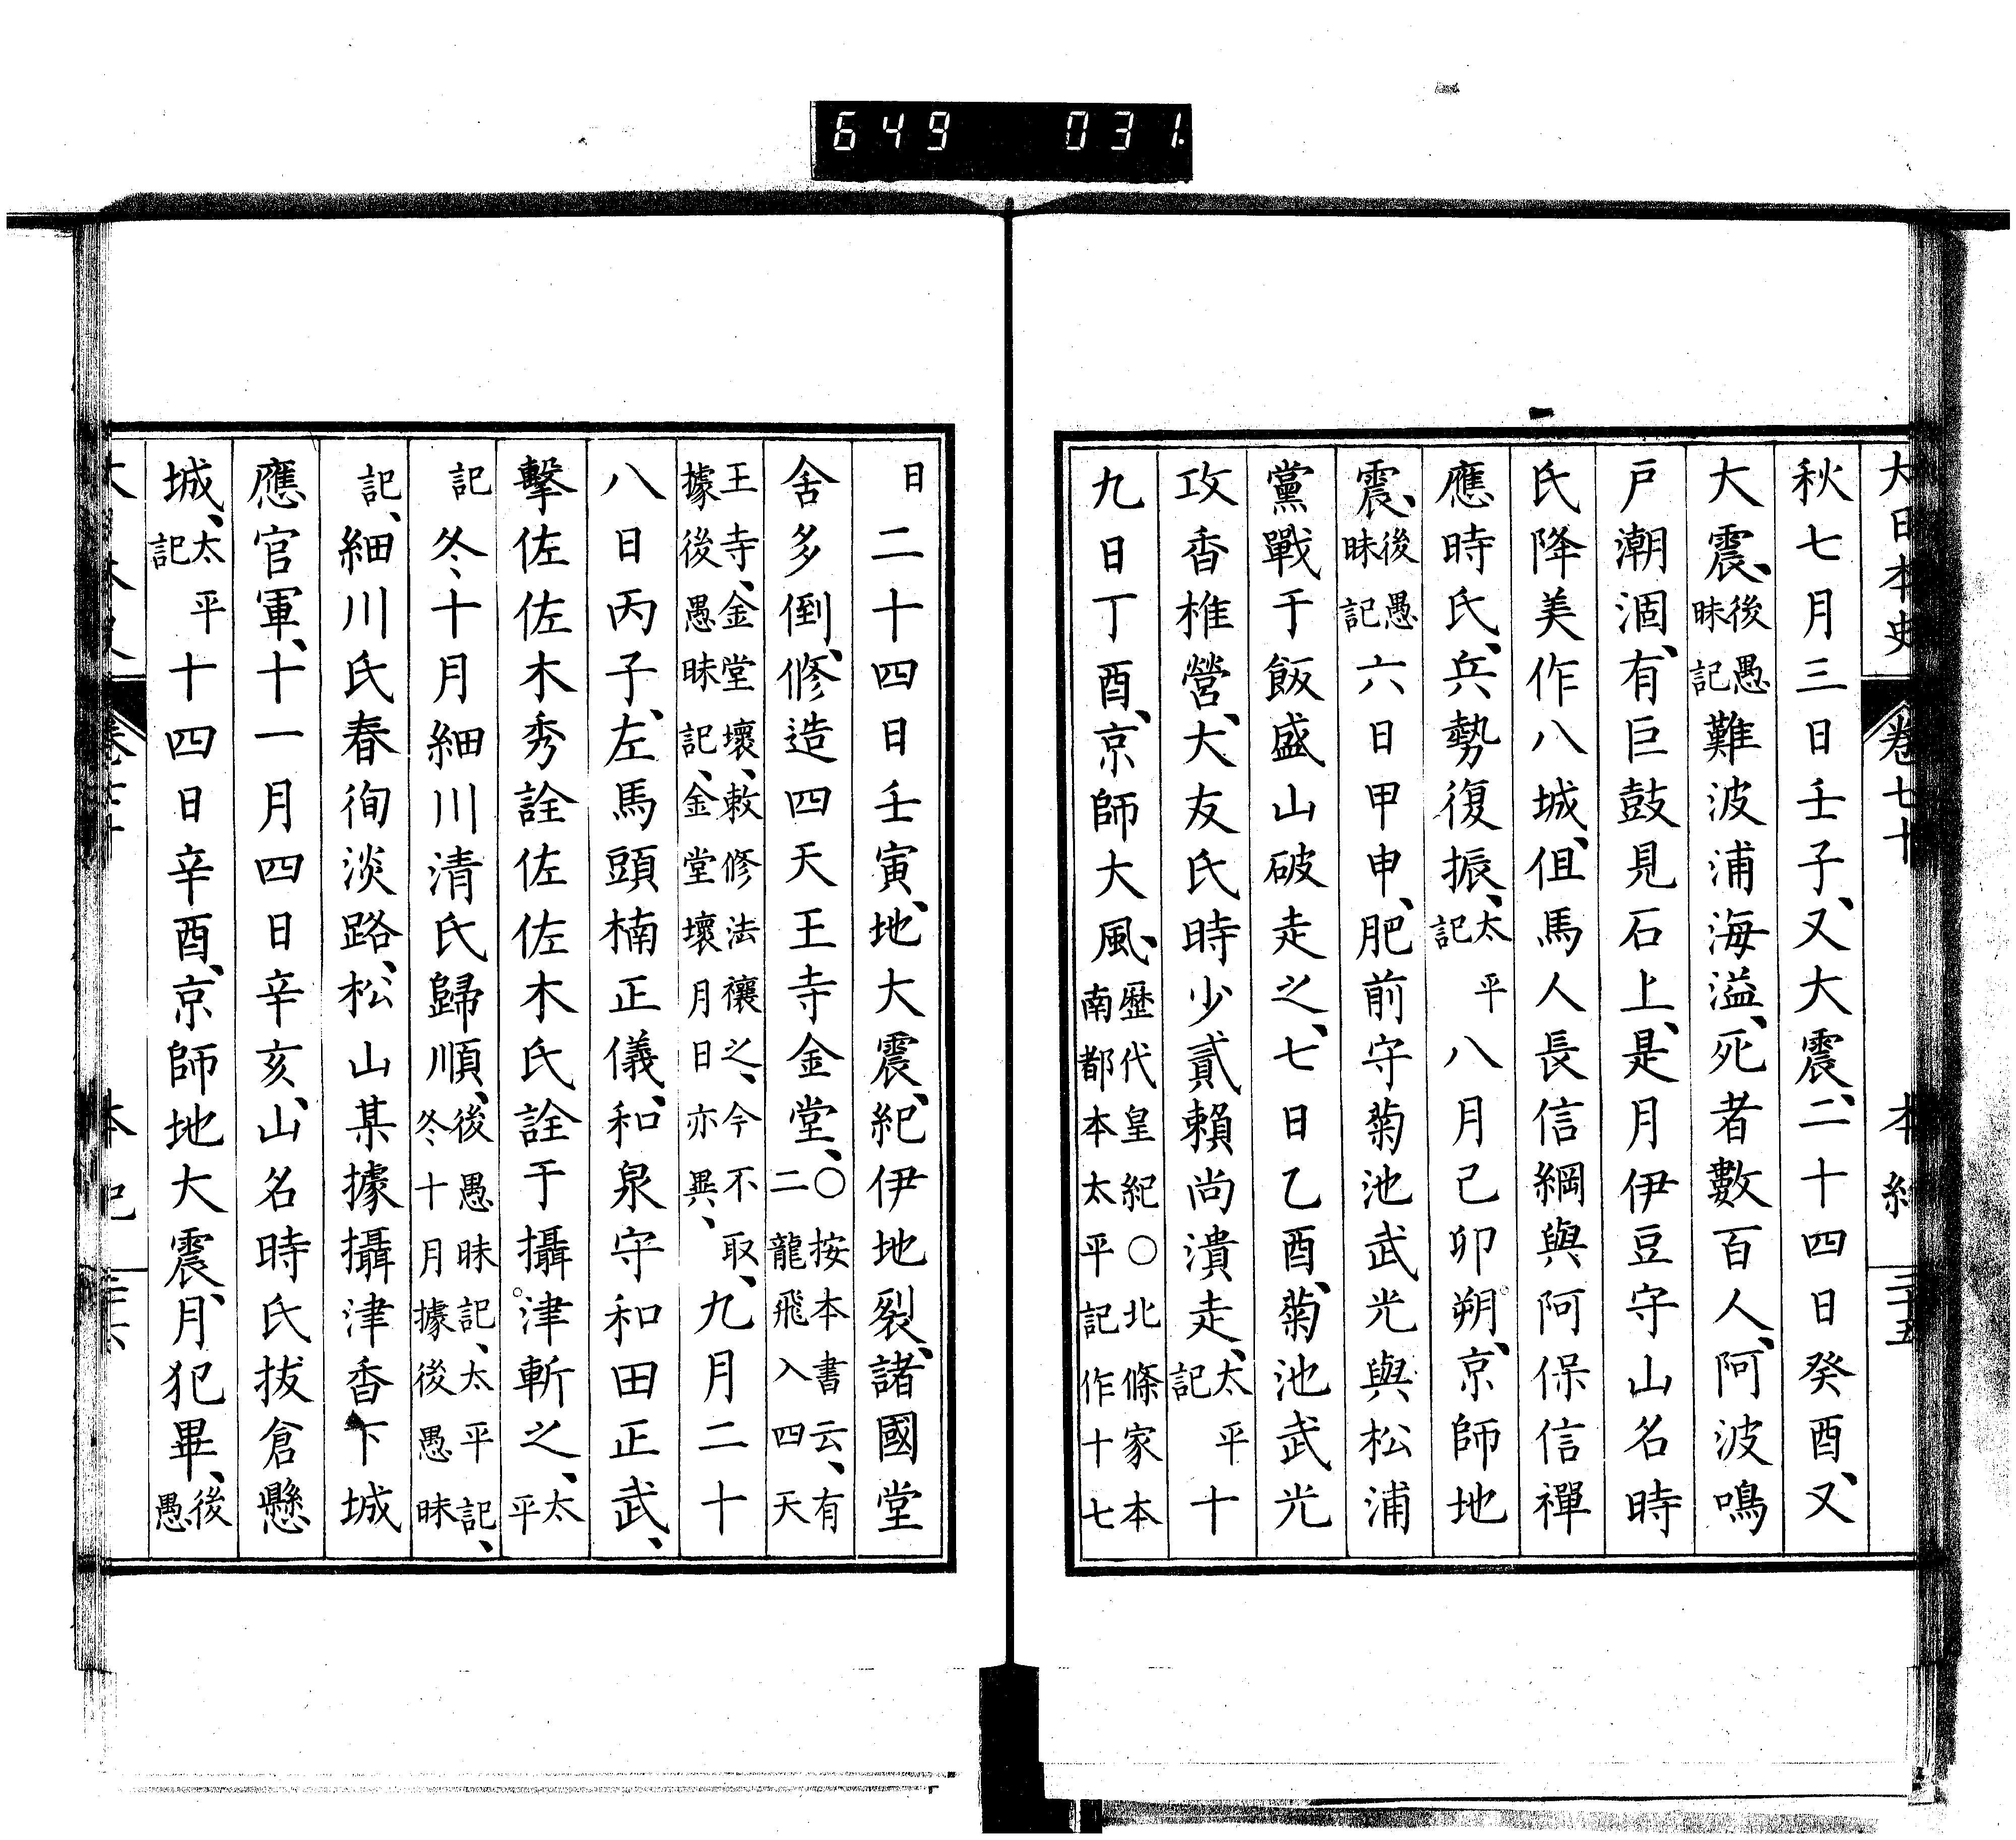 649 031.
大日本史 卷七十 本紀 二十五
秋七月三日壬子、又大震、二十四日癸酉、又
大震、後愚昧記難波浦海溢、死者數百人、阿波鳴
戸潮涸、有巨鼓見石上、是月伊豆守山名時
氏降美作八城、但馬人長信綱與阿保信禪
應時氏、兵勢復振、太平記八月己卯朔、京師地
震、後愚昧記六日甲申、肥前守菊池武光與松浦
黨戰于飯盛山破走之、七日乙酉、菊池武光
攻香椎營、大友氏時少貳賴尚潰走、太平記十
九日丁酉、京師大風、歷代皇紀○北條家本南都本太平記作十七
日二十四日壬寅、地大震、紀伊地裂、諸國堂
舍多倒、修造四天王寺金堂、○按本書云、有二龍飛入四天
王寺、金堂壞、敕修法禳之、今不取、據後愚昧記、金堂壞月日亦異、九月二十
八日丙子、左馬頭楠正儀、和泉守和田正武、
擊佐佐木秀詮佐佐木氏詮于攝津斬之、太平
記冬、十月細川清氏歸順、後愚昧記、太平記、冬十月據後愚昧
記、細川氏春徇淡路、松山某據攝津香下城
應官軍、十一月四日辛亥、山名時氏拔倉懸
城、太平記十四日辛酉、京師地大震、月犯畢、後愚